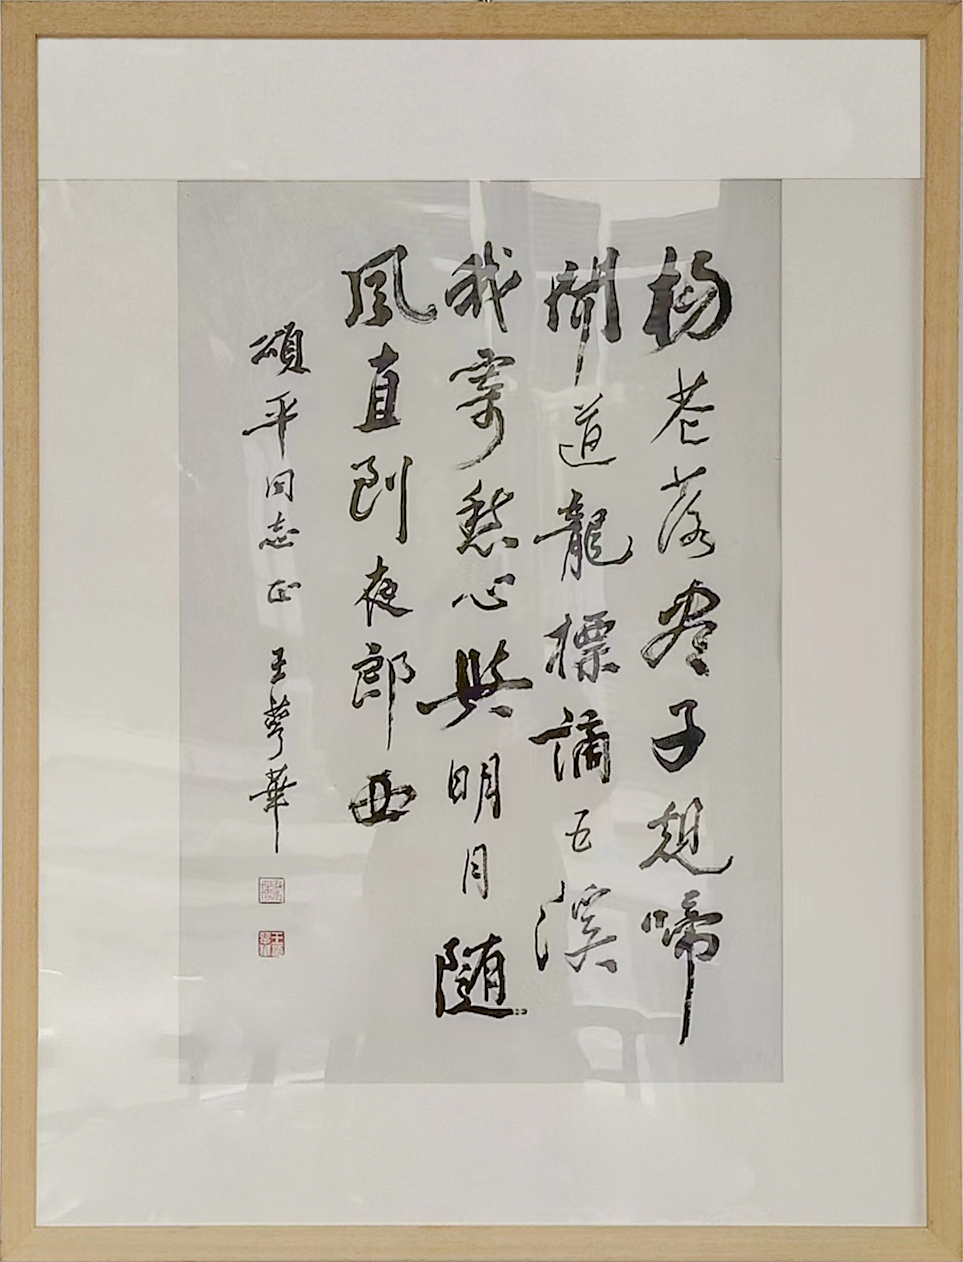 楊花落尽子規啼
聞道龍標謫五溪
我寄愁心與明月隨
風直到夜郎西
頌平同志正 王萼華